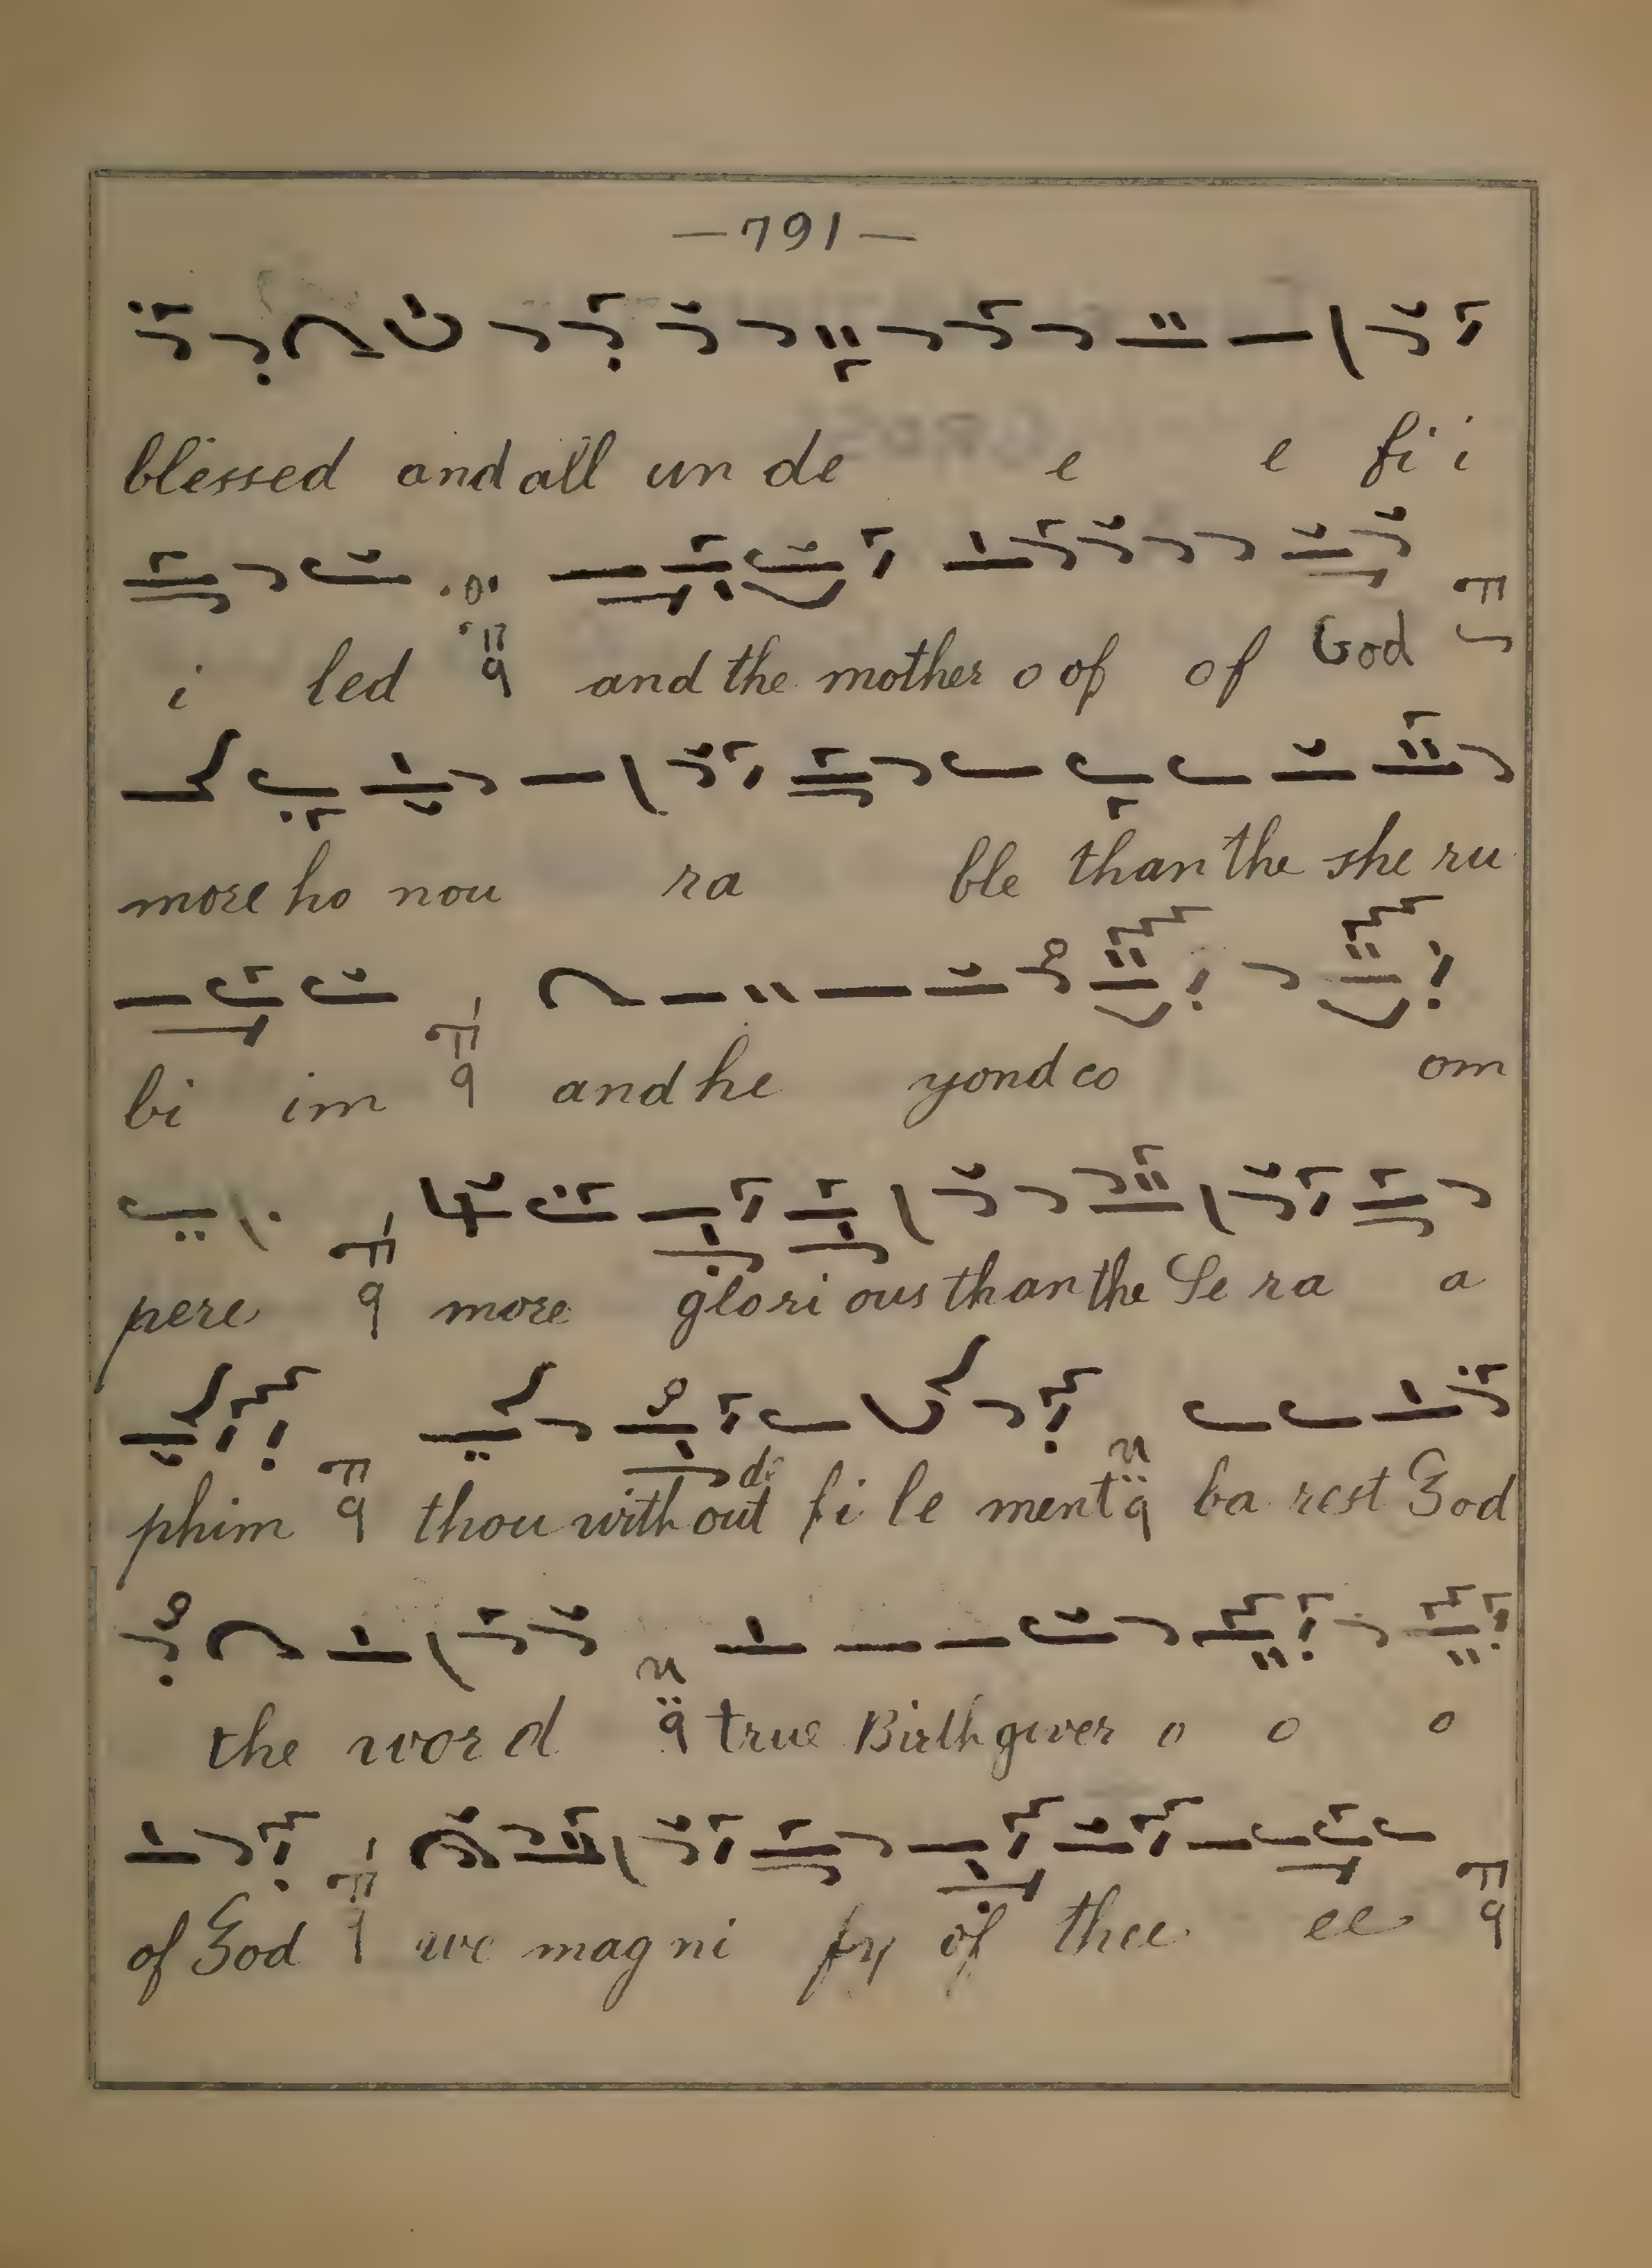 —791—
blessed and all un de e e fi i
i led and the mother o of of God
more ho nou ra ble than the she ru
bi im and he yond co om
pere more glori ous than the Se ra a
phim thou without de fi le ment ba rest God
the word true Birth giver o o o
of God we magni fy of thee ee